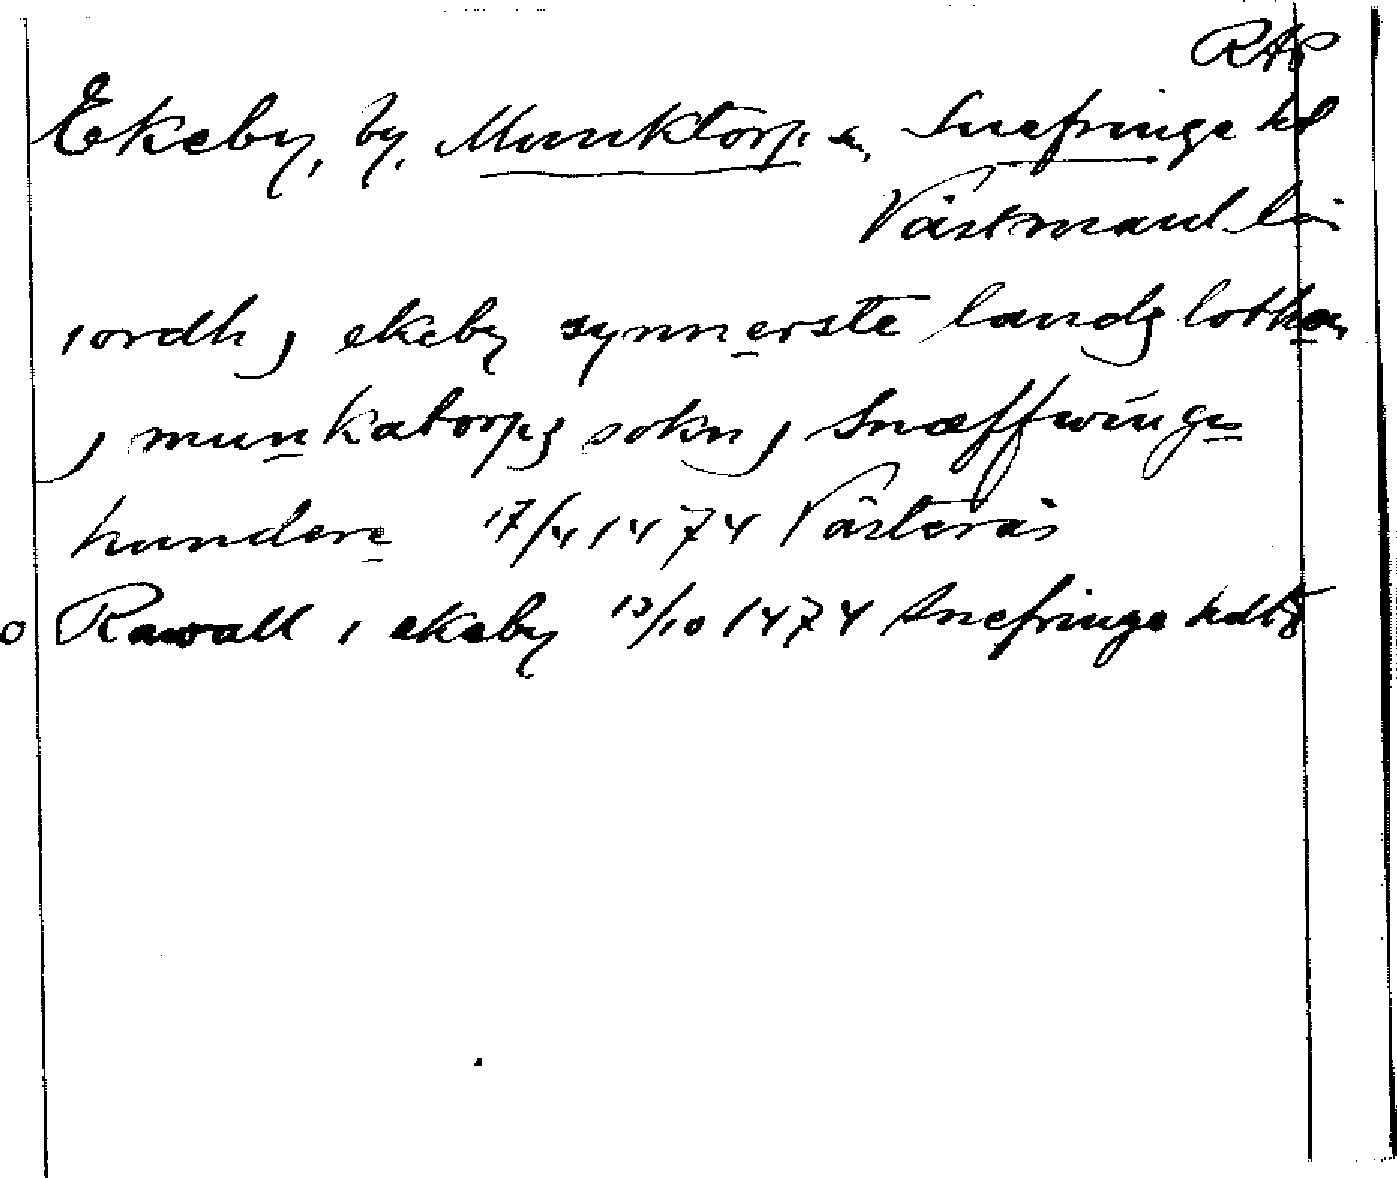 RAP
Ekeby, by, Munktorp sn, Snefringe hd
Västmanl. län
iordh j ekeby synnerste landz lothen
j munkatorpz sokn j Snæffwinge
hundere 17/4 1474 Västerås
o Rawall i ekeby 13/10 1474 Snefringe hdts